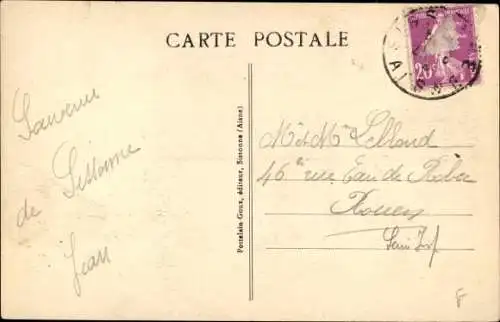 CARTE POSTALE
20
AISNE
Souvenir
de Sissonne
Jean
Portelain-Goux, éditeur, Sissonne (Aisne)
Mr et Mme Lebland
46 rue Eau de Robec
Rouen
Seine Inf